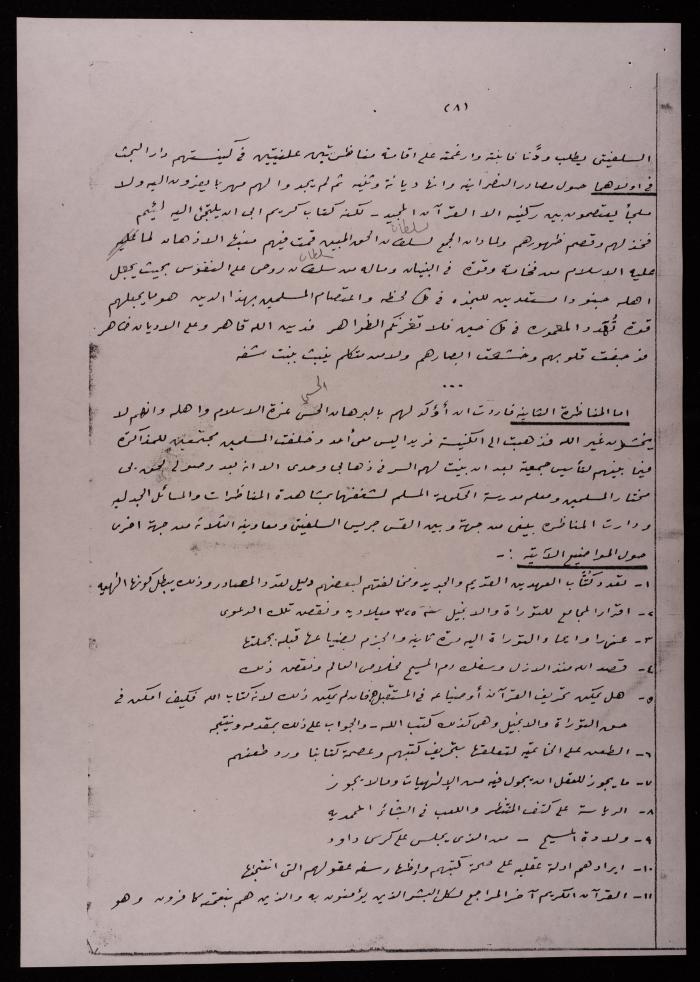 (٨)
السلفيتي يطلب ودّنا فابنة وارغمته على اقامة مناظرتين علنيتين في كنيستهم دار البحث
في اولاهما حول مصادر النصرانية وانها ديانة وثنية ثم لم يجدوا لهم مهربا يفزون اليه ولا
ملجأ يعتصمون بين ركنيه الا القرآن المجيد - لكنه كتاب كريم ابى ان يلتجئ اليه أثيم
فخذلهم وقصم ظهورهم ولما دان الجمع لسلطان الحق المبين قمت فيهم منبها الاذهان لما
سلطان
عليه الاسلام من فخامة وقوة في البنيان وماله من سلطان روحي على النفوس بحيث يجعل
سلطان
اهله جنودا مستعدين للنجدة في كل لحظة واعتصام المسلمين بهذا الدين هو ما يجعلهم
قوة تهدد المعمورة في كل حين فلا تغرنكم الظواهر فدين الله قاهر وعلى الاديان ظاهر
فوجفت قلوبهم وخشعت ابصارهم ولا من متكلم ينبث ببنت شفه
...
الحسي
اما المناظرة الثانية فاردت ان أؤكد لهم بالبرهان الحسي عزة الاسلام واهله وانهم لا
يخشون غير الله فذهبت الى الكنيسة فريدا ليس معي أحد وخلفت المسلمين مجتمعين للمذاكرة
فيما بينهم لتأسيس جمعية بعد ان بينت لهم السر في ذهابي وحدي الا انه بعد وصولي لحق بي
مختار المسلمين ومعلم مدرسة الحكومة المسلم لشغفهما بمشاهدة المناظرات والمسائل الجدليه
ودارت المناظرة بيني من جهة وبين القس جريس السلفيتي ومعاونيه الثلاثة من جهة اخرى
حول المواضيع الآتية :-
١- تعدد كُتَّاب العهدين القديم والجديد ومخالفتهم لبعضهم دليل تعدد المصادر وذلك يبطل كونها الهيه
٢- اقرار المجامع للتوراة والانجيل سنة ٣٢٥ ميلاديه ونقض تلك الدعوى
٣- عنهرا وايما والتوراة اليه مرة ثانية والجزم بضياعها قبله بجملتها
٤- قصد الله منذ الازل وسفك دم المسيح لخلاص العالم ونقض ذلك
٥- هل يمكن تحريف القرآن أو ضياعه في المستقبل فان لم يمكن ذلك لانه كتاب الله فكيف امكن في
حق التوراة والانجيل وهي كذلك كتب الله - والجواب على ذلك بمقدمه ونتيجه
٦- الطعن على الخاتمية لتعلقها بتحريف كتبهم وعصمة كتابنا ورد طعنهم
٧- ما يجوز للعقل ان يجول فيه من الإلهيات وما لا يجوز
٨- الرياسة على كتف المنتظر واللعب في البشائر المحمديه
٩- ولادة المسيح - من الذي يجلس على كرسي داود
١٠- ايرادهم ادلة عقليه على صحة كتبهم وإظهار سفه عقولهم التي انتجتها
١١- القرآن الكريم آخر المراجع لكل البشر الذين يؤمنون به والذين هم بنعمته كافرون وهو